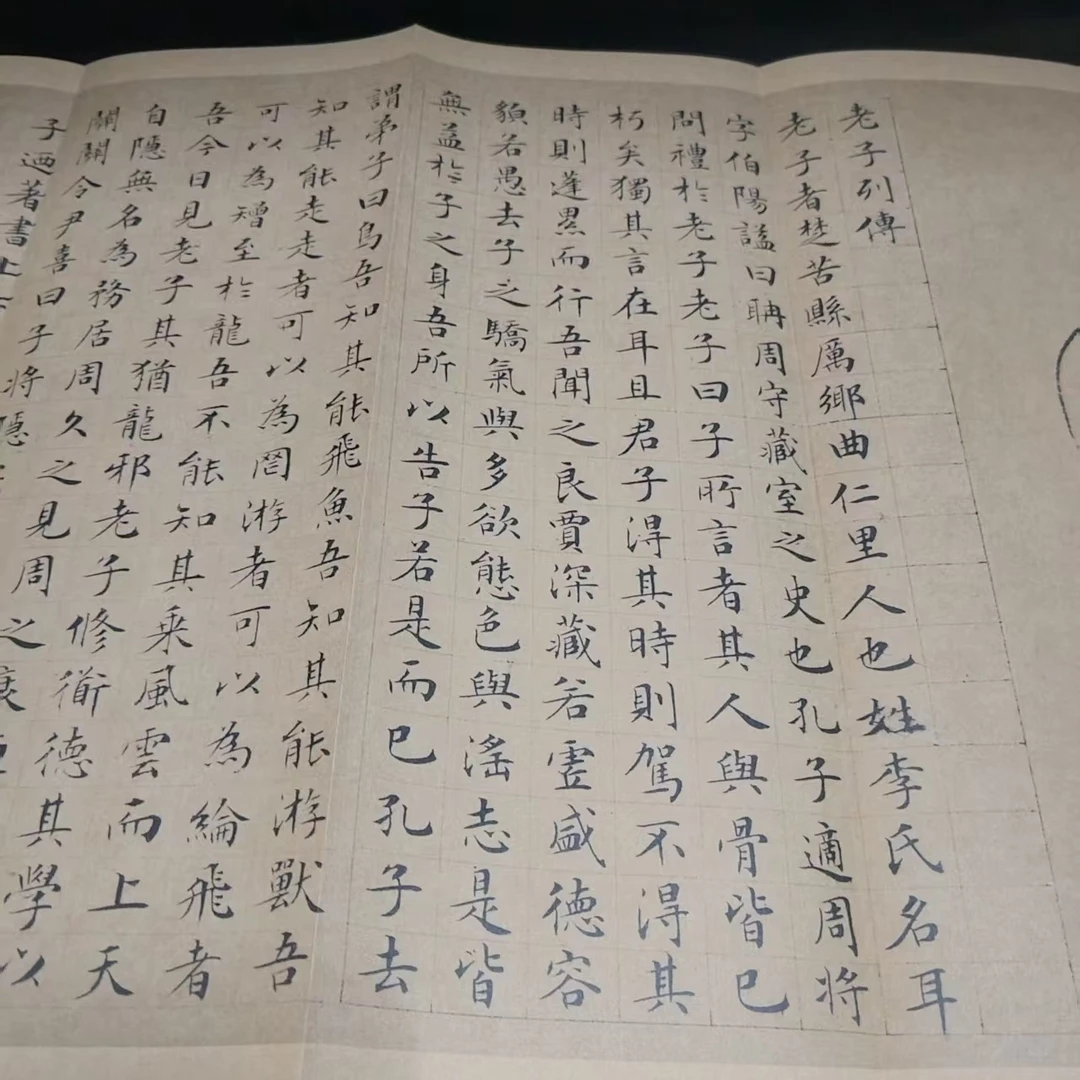 老子列傳
老子者楚苦縣厲鄉曲仁里人也姓李氏名耳
字伯陽謚曰聃周守藏室之史也孔子適周將
問禮於老子老子曰子所言者其人與骨皆已
朽矣獨其言在耳且君子得其時則駕不得其
時則蓬累而行吾聞之良賈深藏若虛盛德容
貌若愚去子之驕氣與多欲態色與滛志是皆
無益於子之身吾所以告子若是而已孔子去
謂弟子曰鳥吾知其能飛魚吾知其能游獸吾
知其能走走者可以為罔游者可以為綸飛者
可以為矰至於龍吾不能知其乘風雲而上天
吾今日見老子其猶龍邪老子修衟德其學以
自隱無名為務居周久之見周之衰
關關令尹喜曰子將隱
子迺著書上